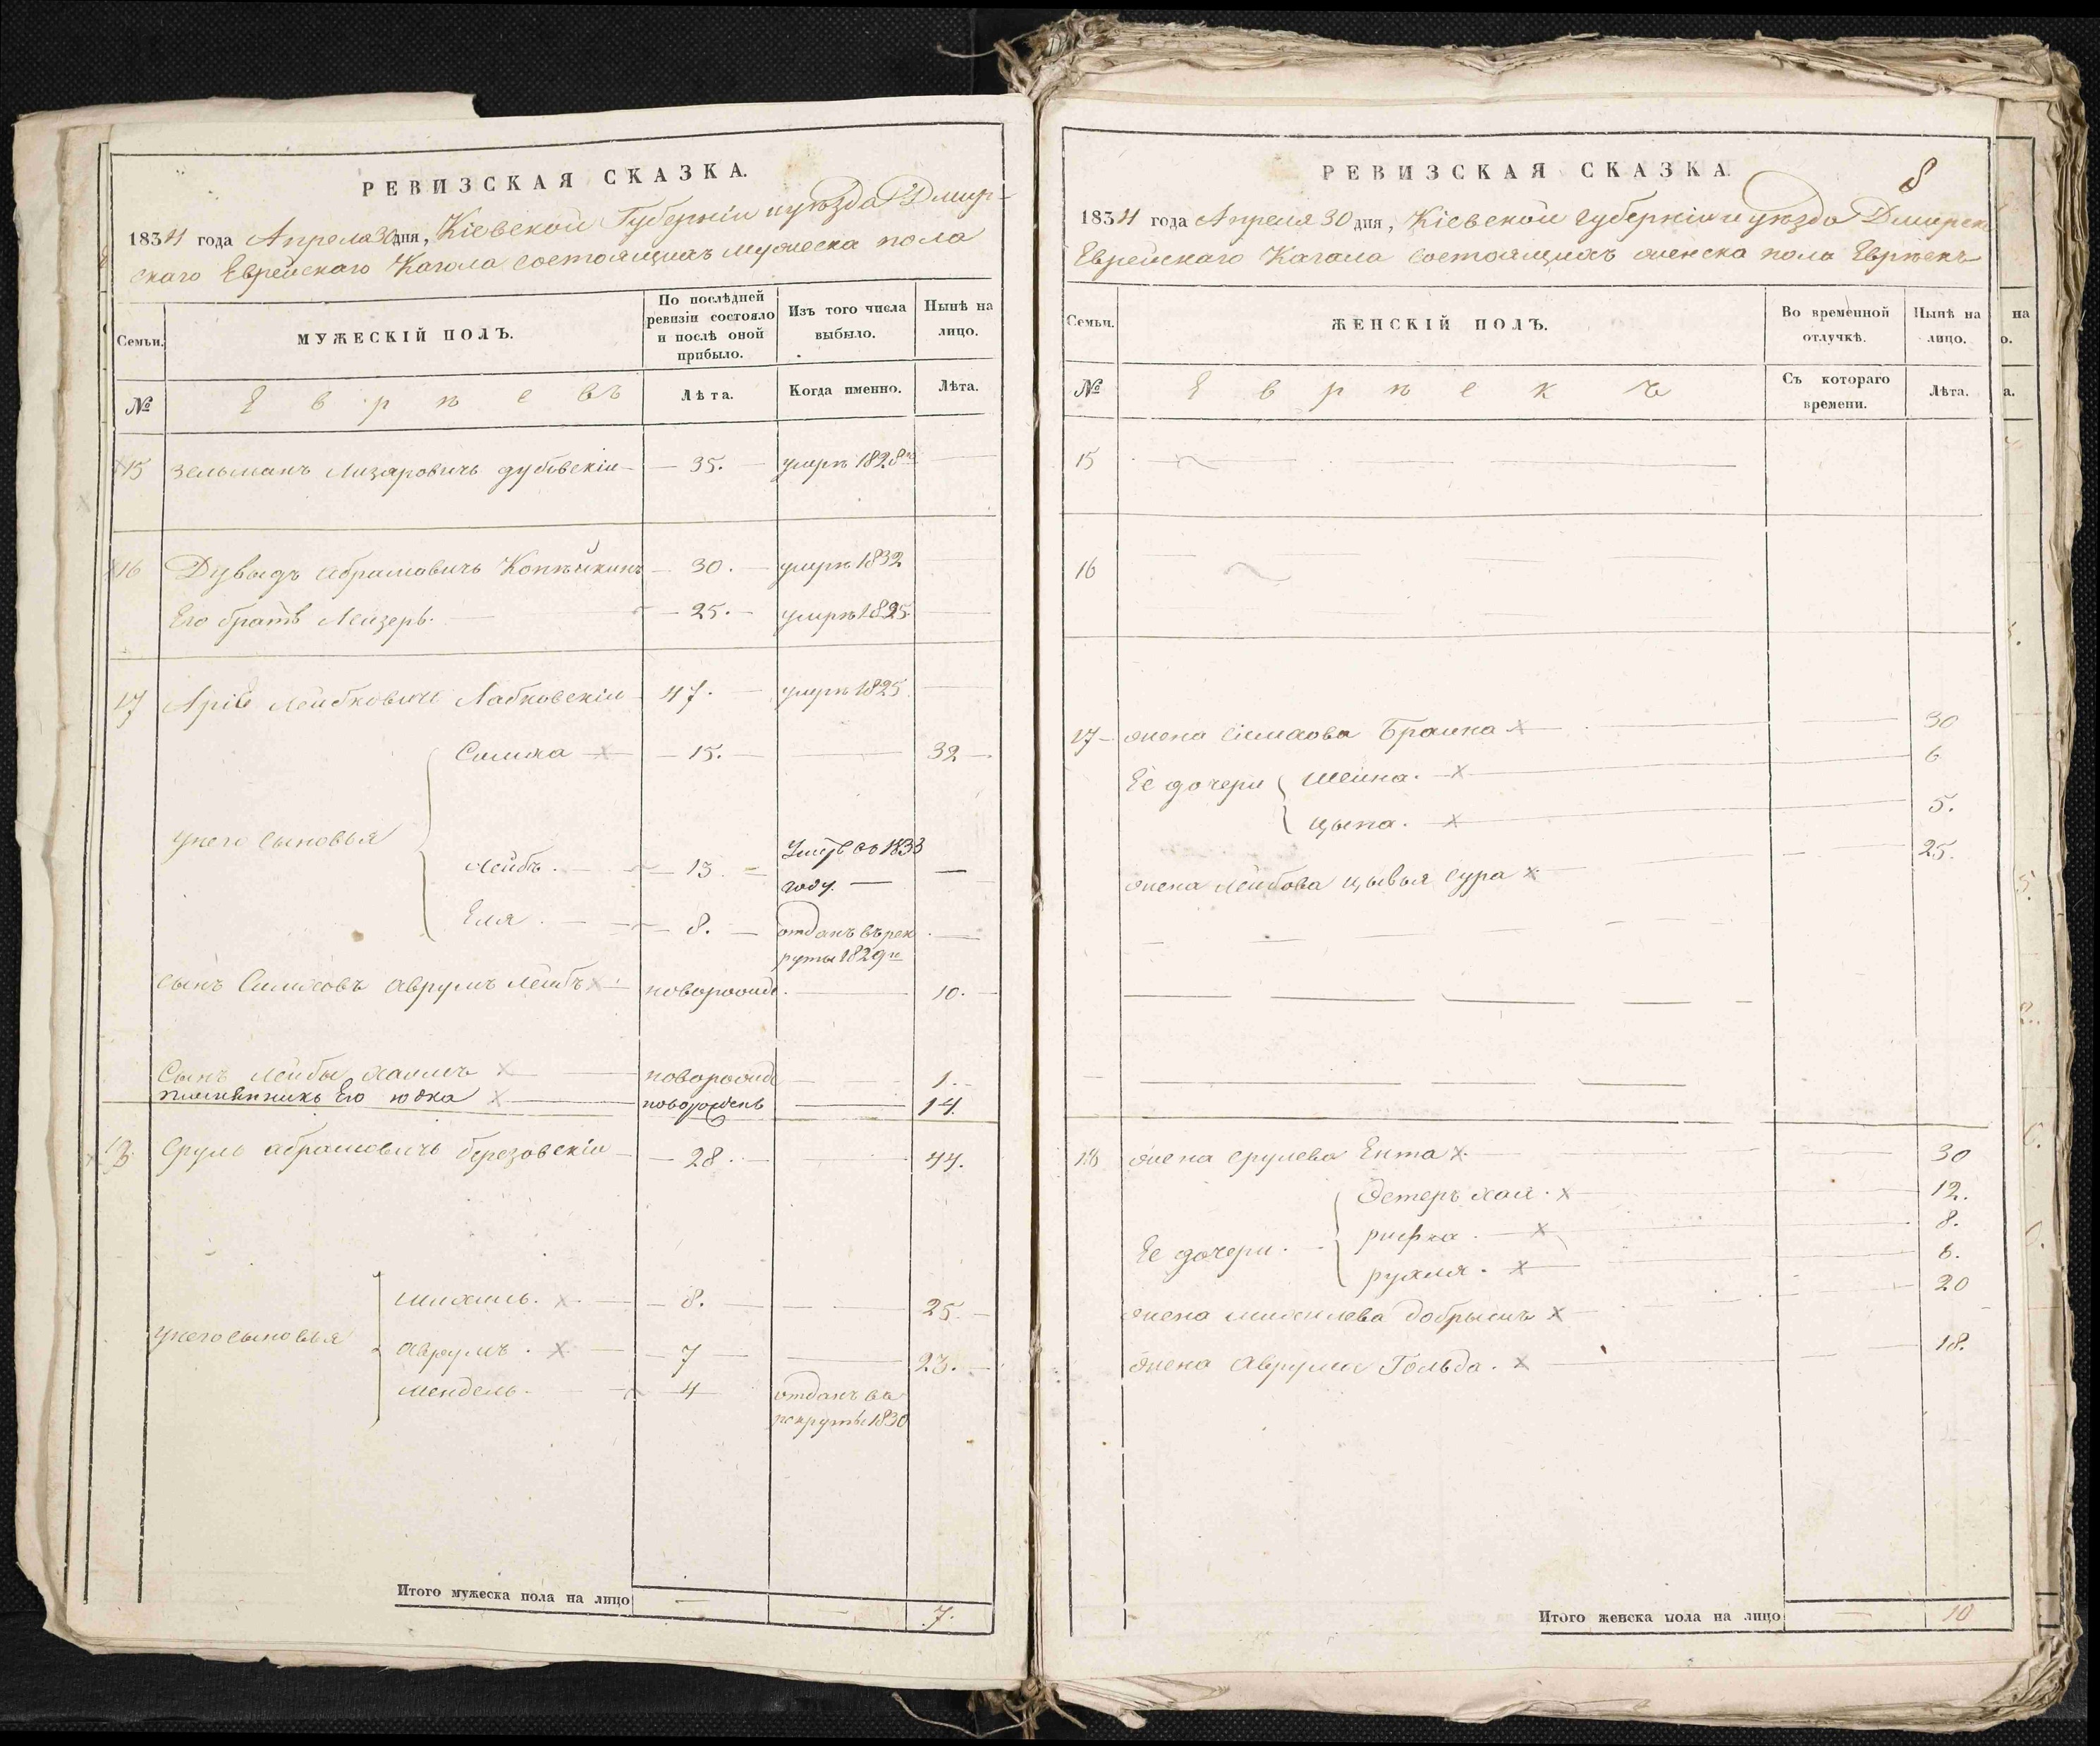 РЕВИЗСКАЯ СКАЗКА.
1834 года Апреля 30 дня, Кіевской Губерніи и уѣзда Дмир-
скаго Еврейскаго Кагала состоящихъ мужеска пола
Семьи.
МУЖЕСКІЙ ПОЛЪ.
По послѣдней ревизіи состояло и послѣ оной прибыло.
Изъ того числа выбыло.
Нынѣ на лицо.
№
Евреевъ
Лѣта.
Когда именно.
Лѣта.
15 Зельманъ Лизаровичъ дубовскіи 35. умре 1828го
16 Дувыдъ Абрамовичъ Копѣйкинъ 30. умре 1832
Его братъ Лейзеръ. 25. умре 1825.
17 Аріе Лейбковичъ Лабковскіи 47. умре 1825.
Симха х 15. 32
у него сыновья
Лейбъ. 13. Умре въ 1833
году.
Еля. 8. отданъ въ рек
руты 1829го
Сынъ Симховъ Аврумъ Лейбъ х новорожде. 10.
Сынъ Лейбы Хаимъ х новорожде 1.
племѣнникъ Его Юдка х новорожденъ 14.
18 Сруль Абрамовичъ березовскіи 28. 44.
у него сыновья
Михель. х 8. 25.
Аврумъ. х 7 23.
Мендель. 4 отданъ въ
рекруты 1830
Итого мужеска пола на лицо 7.
8
РЕВИЗСКАЯ СКАЗКА.
1834 года Апреля 30 дня, Кіевской Губерніи и уѣзда Дмирска
Еврейскаго Кагала состоящихъ женска пола Евреекъ
Семьи.
ЖЕНСКІЙ ПОЛЪ.
Во временной отлучкѣ.
Нынѣ на лицо.
№
Евреекъ
Съ котораго времени.
Лѣта.
15
16
17 жена Симхова Браина х 30
Ее дочери
Шейна. х 6
Цыпа. х 5.
жена Лейбова Цывья Сура х 25.
18 жена Срулева Ента х 30
Ее дочери.
Эстеръ Хая. х 12.
Рифка. х 8.
Рухля. х 6.
жена Михелева Добрышъ х 20
жена Аврума Гольда. х 18.
Итого женска пола на лицо 10